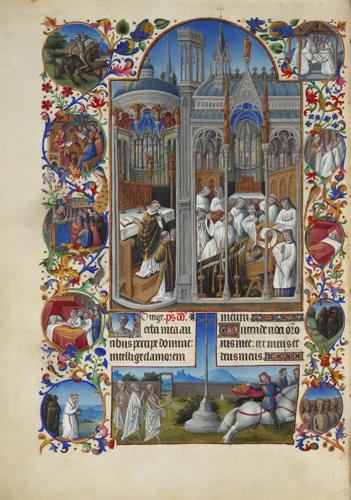 ps. dd.
Verba mea au
ribus percipe domine:
intellige clamorem
meum.
Intende voci oro
nis mee: rex meus et
deus meus.